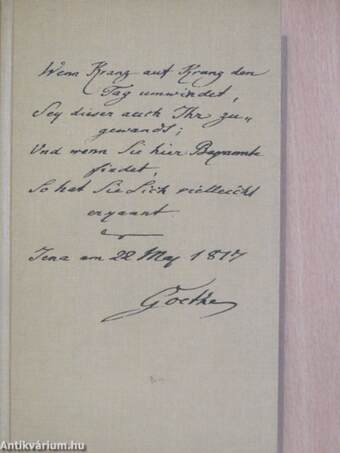 Wenn Kranz auf Kranz den
Tag umwindet,
Sey dieser auch Ihr zu„
gewandt;
Und wenn Sie hier Bekannte
findet,
So hat Sie Sich vielleicht
erkannt
Jena am 22 May 1817
Goethe
Antikvárium.hu